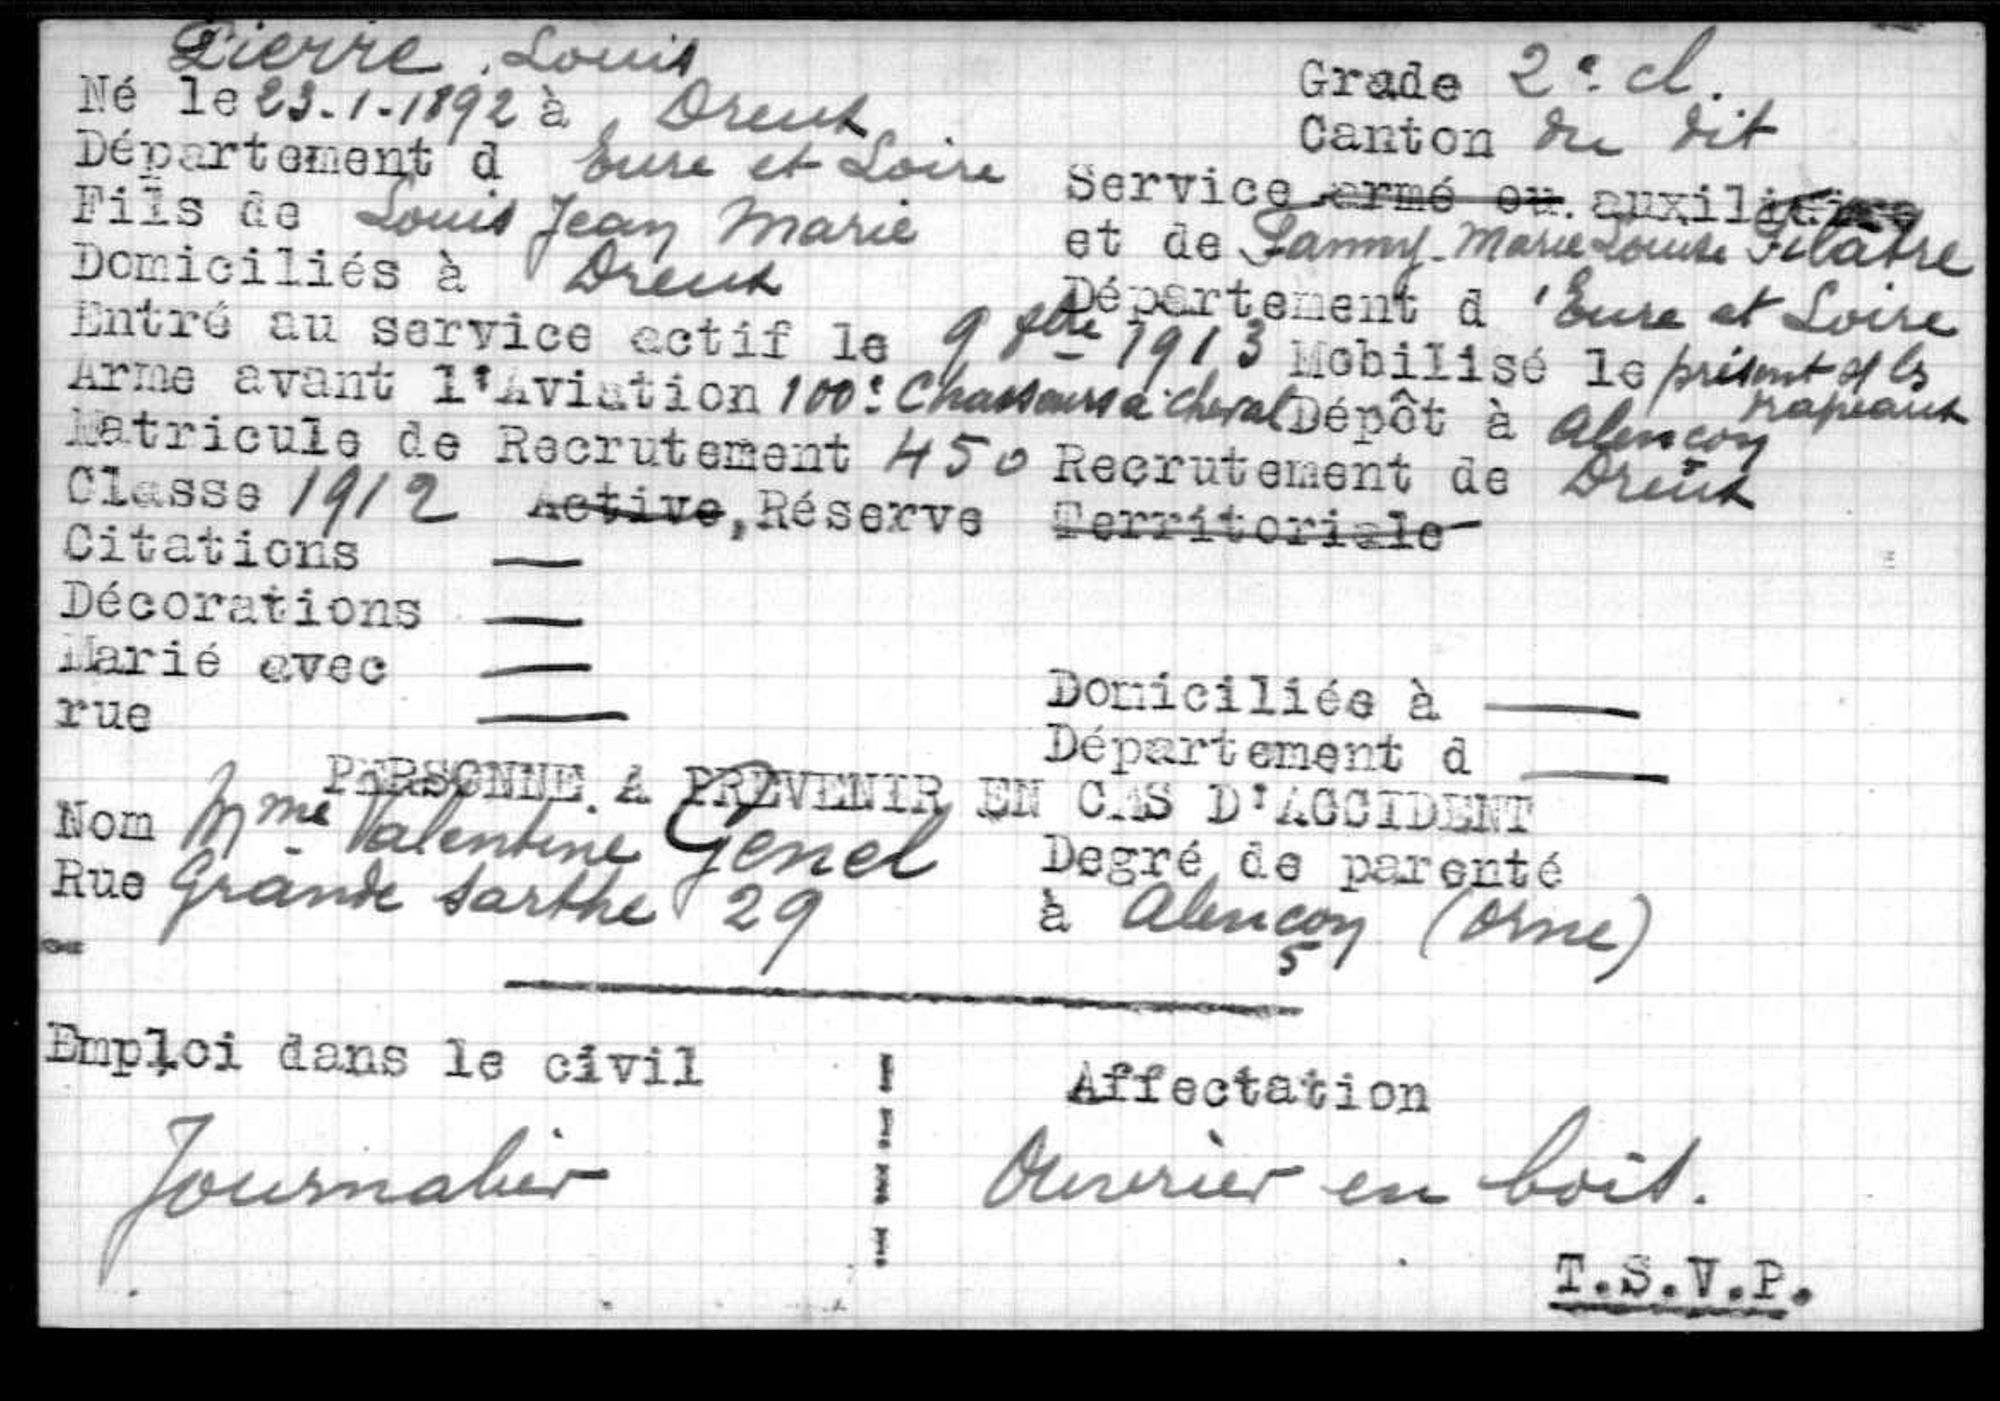 Pierre, Louis
Grade 2e cl.
Né le 23-1-1892 à Dreux
Canton du dit
Département d Eure et Loire
Service armé ou auxiliaire
Fils de Louis Jean Marie
et de Fanny Marie Louise Filatre
Domiciliés à Dreux
Département d 'Eure et Loire
Entré au service actif le 9 8bre 1913 Mobilisé le présent s/ ls drapeaux
Arme avant l'Aviation 100e Chasseurs à cheval Dépôt à Alençon
Matricule de Recrutement 450 Recrutement de Dreux
Classe 1912 Active, Réserve Territoriale
Citations —
Décorations —
Marié avec —
Domiciliés à —
rue —
Département d —
PERSONNE A PREVENIR EN CAS D'ACCIDENT
Nom Mme Valentine Genel
Degré de parenté
Rue Grande Sarthe 29
à Alençon (Orne)
Emploi dans le civil
Affectation
Journalier
Ouvrier en bois.
T.S.V.P.